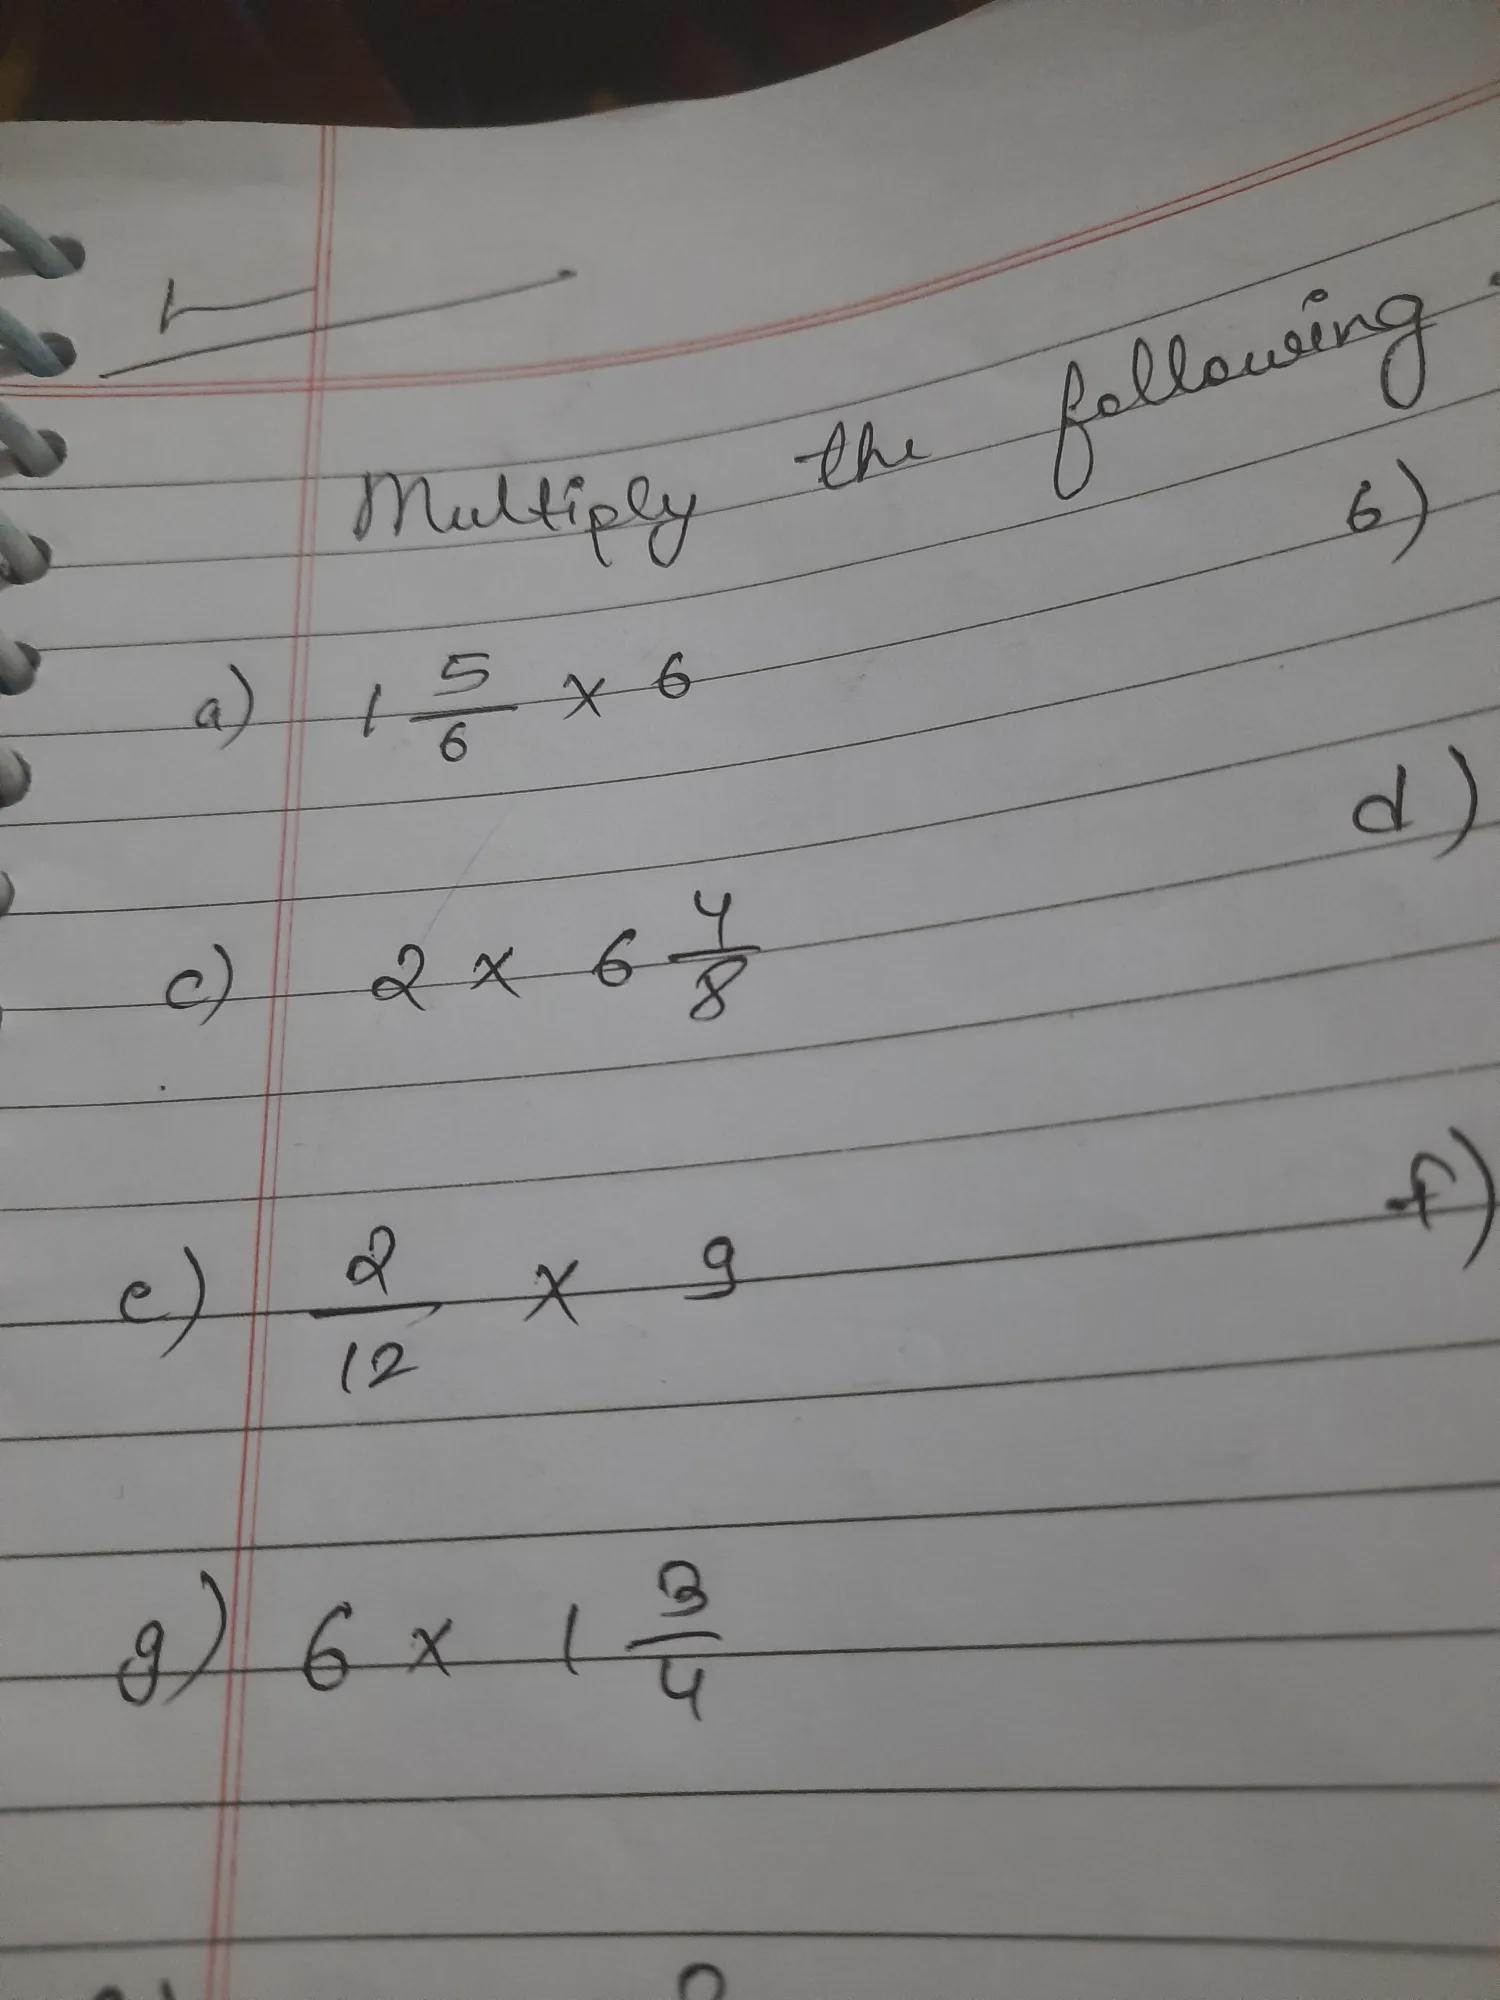 Multiply the following :
a) 1 5/6 x 6 b)
c) 2 x 6 4/8 d)
e) 2/12 x 9 f)
g) 6 x 1 3/4